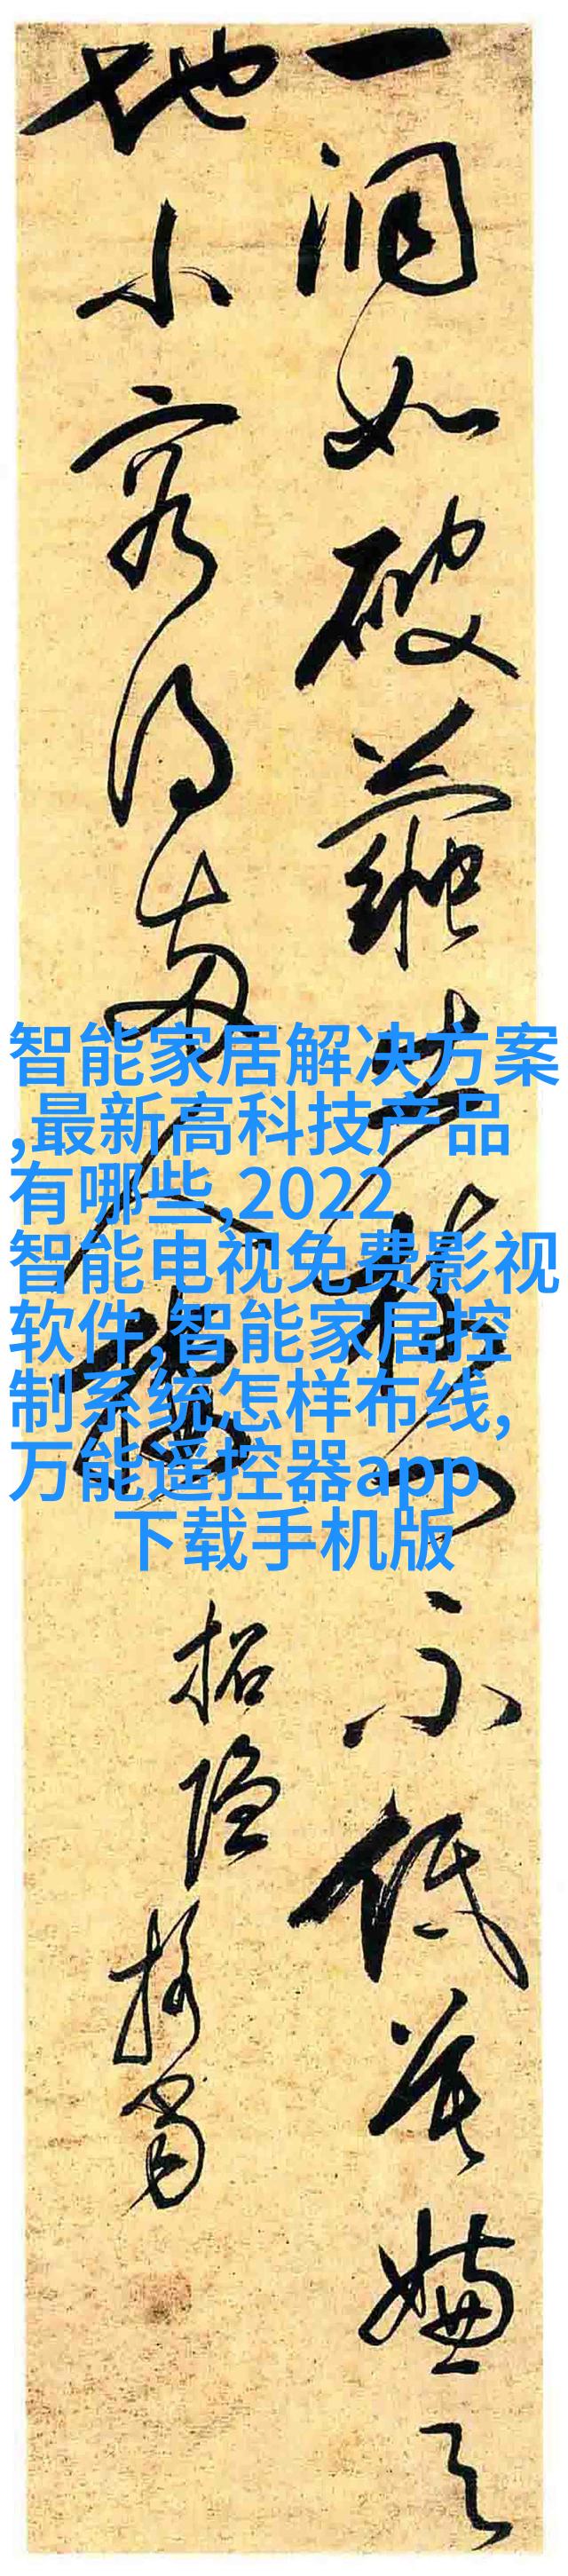 一洞如破不低莫嫌天
地小容得两人棲
招隐
智能家居解决方案
,最新高科技产品
有哪些,2022
智能电视免费影视
软件,智能家居控
制系统怎样布线,
万能遥控器app
下载手机版